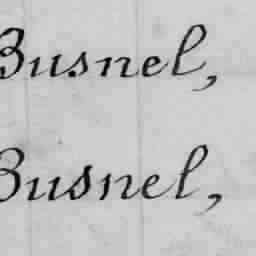 Busnel,
Busnel,